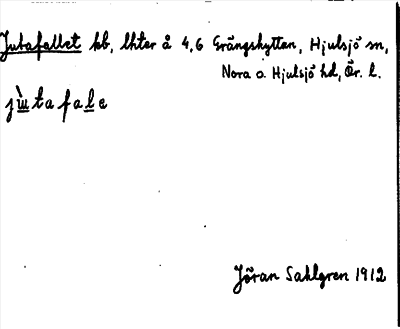 Jutafallet hb, lhter å 4,6 Grängshyttan, Hjulsjö sn,
Nora o. Hjulsjö hd, Ör. l.
jùtafale
Jöran Sahlgren 1912